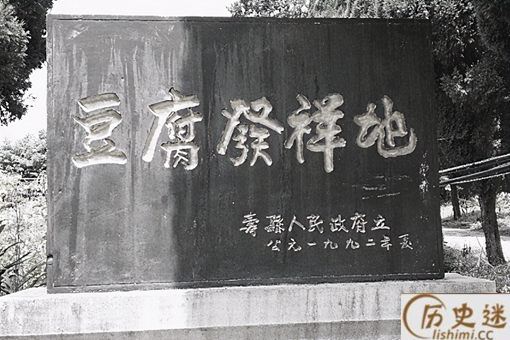 豆腐發祥地
壽縣人民政府立
公元一九九二年夏
历史迷
lishimi.cc